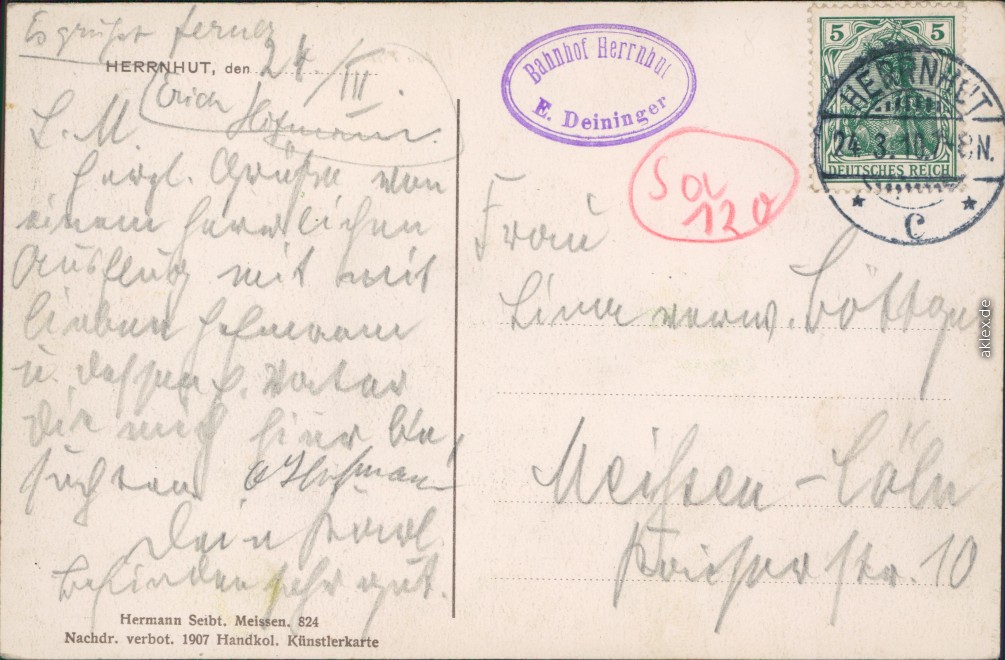 Es grüßt ferner
HERRNHUT, den 24./III.
Erich Hofmann.
L. M.
Herzl. Grüße von
einem herrlichen
Ausflug mit
lieben Hofmann
u. dessen l. Vater
die mich hier be-
suchten. Hofmann
Dein Karl.
Befinden sehr gut.
Hermann Seibt. Meissen. 824
Nachdr. verbot. 1907 Handkol. Künstlerkarte
Bahnhof Herrnhut
E. Deininger
5 5
DEUTSCHES REICH
HERRNHUT
24.3.10. 8N.
* c *
120
Frau
verw. Böttger
Meissen-Cöln
Kaiserstr. 10
aklex.de